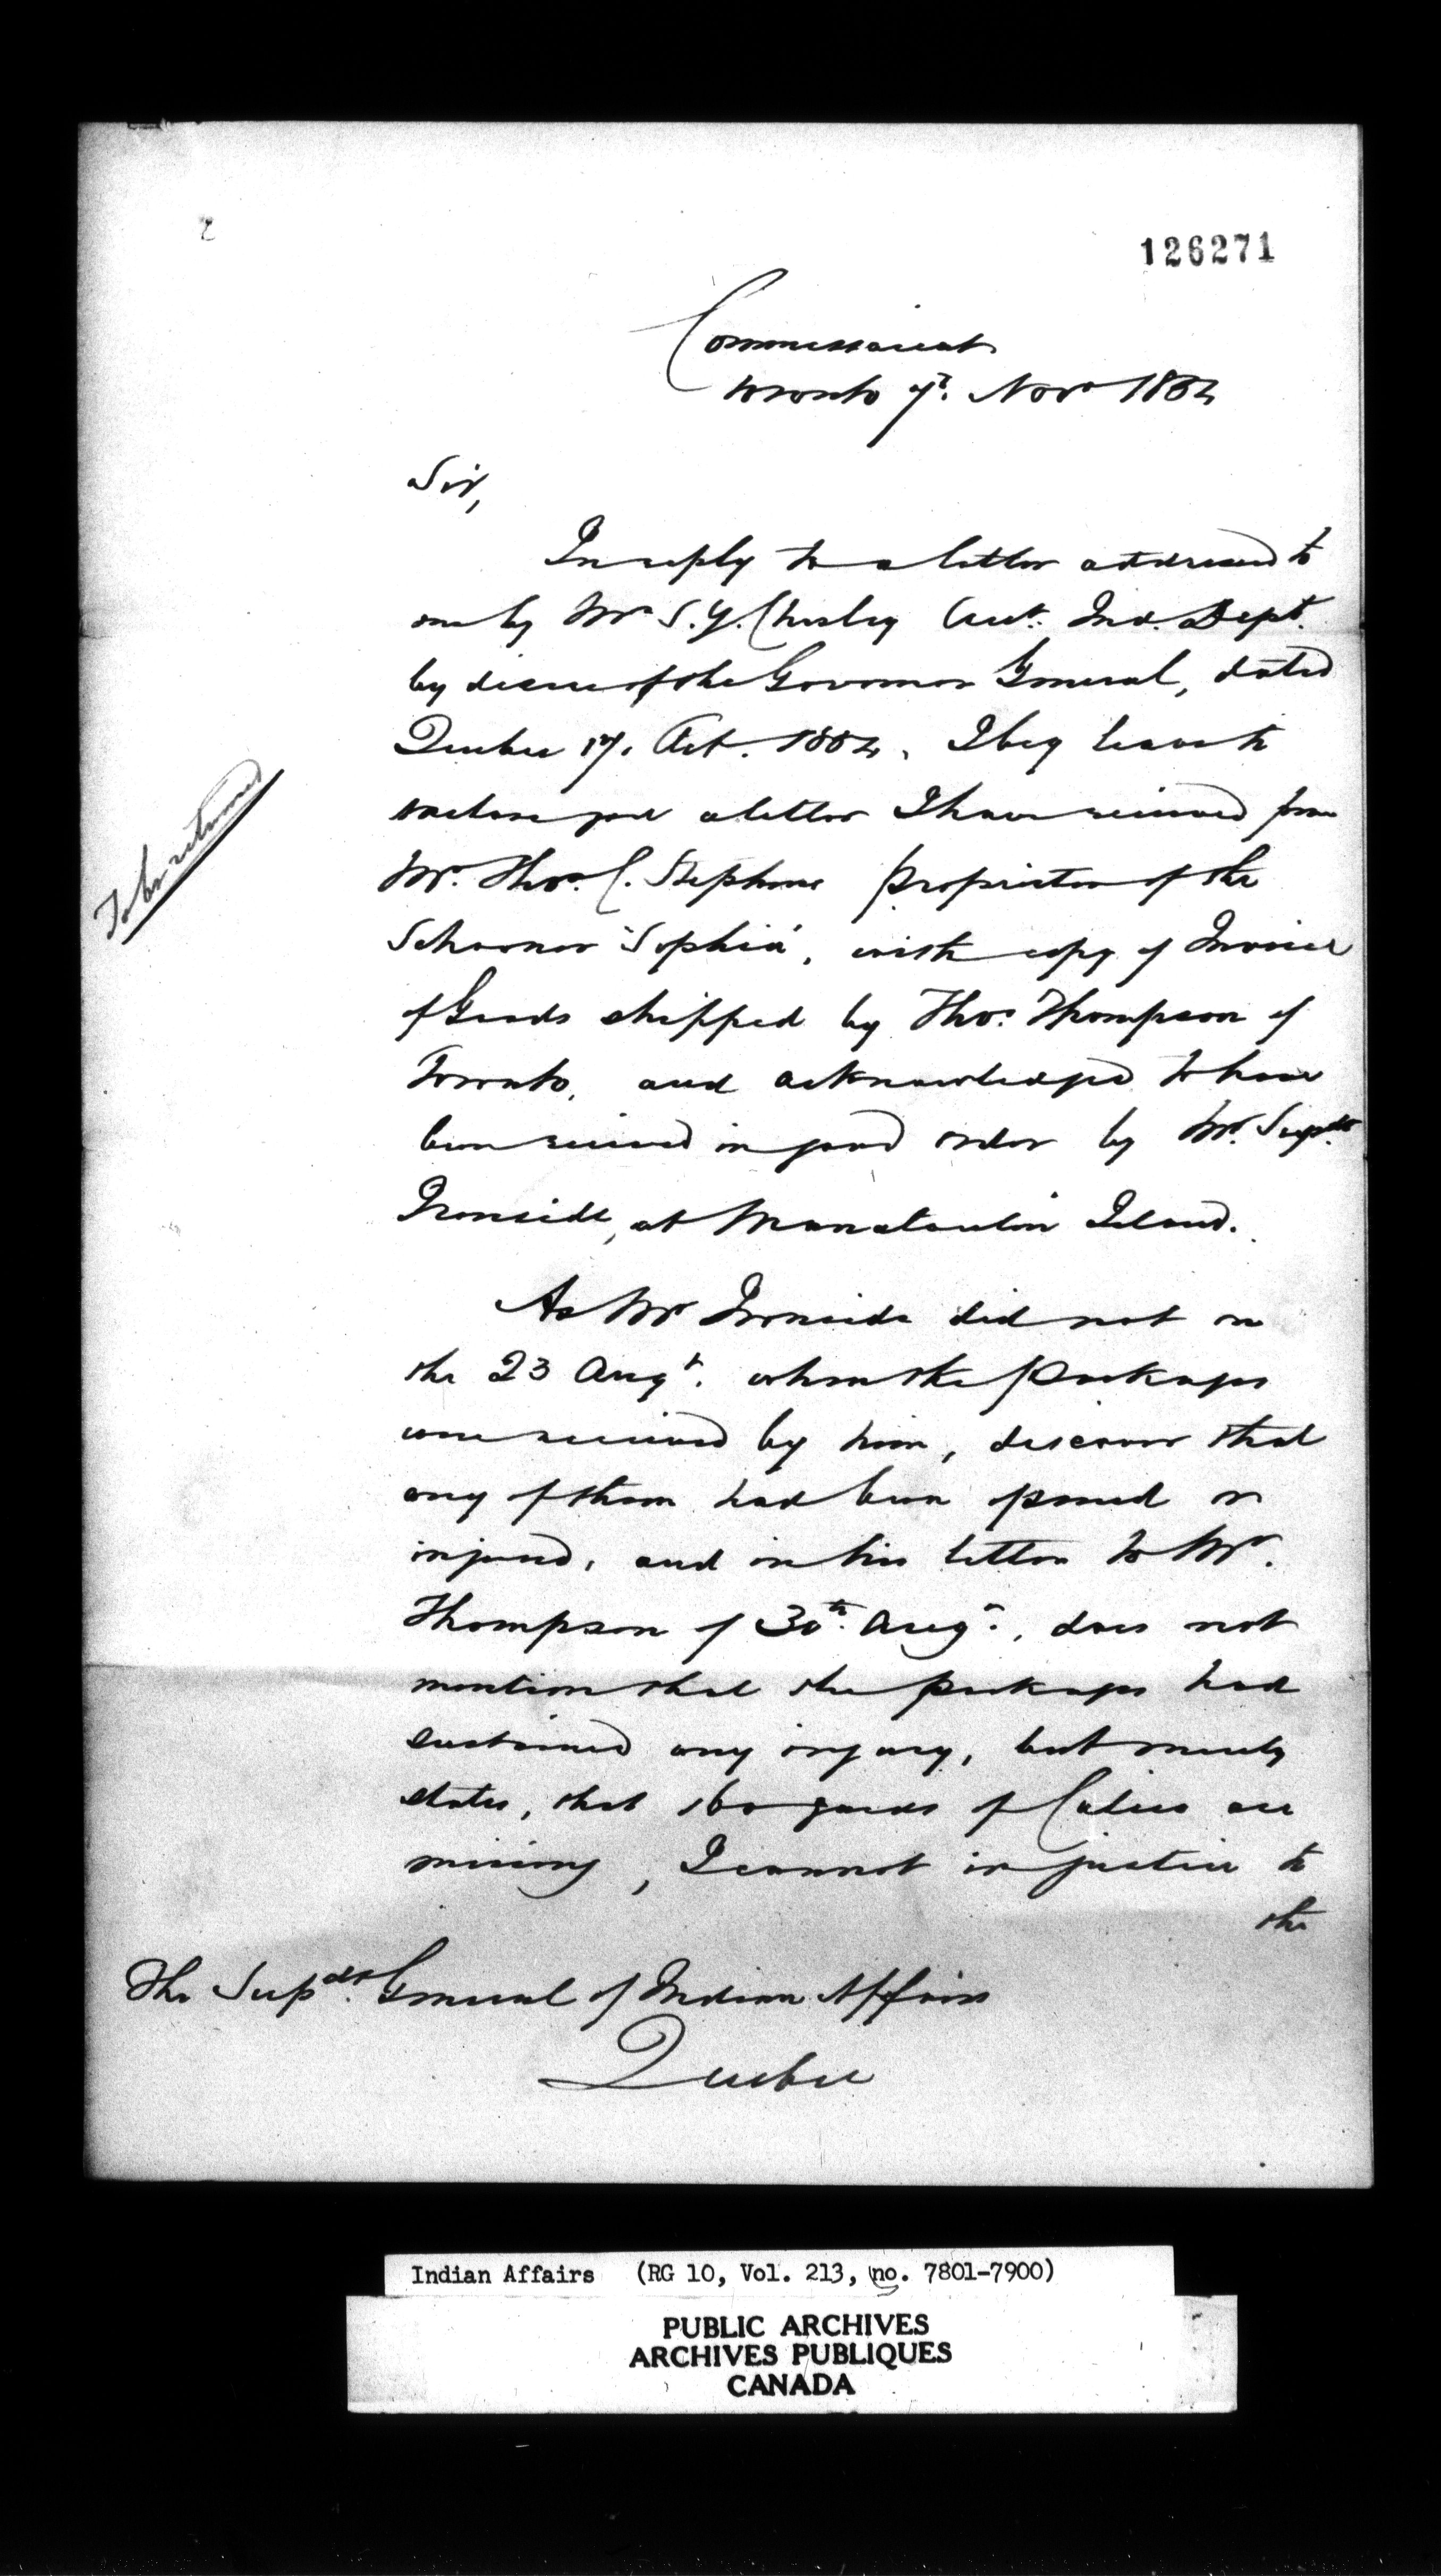 126271
Commissariat
Toronto 7th Novr 1854
Sir,
In reply to a letter addressed to
me by Mr S.Y. Chesley Acct. Ind. Dept.
by desire of the Governor General, dated
Quebec 17. Oct. 1854, I beg leave to
enclose you a letter I have received from
Mr. Thos. C. Stephens Proprietor of the
Schooner "Sophia", with copy of Invoice
of Goods shipped by Thos. Thompson of
Toronto, and acknowledged to have
been received in good order by Mr. Supdt
Ironside, at Manatoulin Island.
To be returned
As Mr Ironside did not on
the 23 Augt. when the packages
were received by him, discover that
any of them had been opened or
injured, and in his letter to Mr.
Thompson of 30th Augt., does not
mention that the packages had
sustained any injury, but merely
states, that 160 yards of Calico are
missing, I cannot in justice to
the
The Supdt. General of Indian Affairs
Quebec
Indian Affairs (RG 10, Vol. 213, no. 7801-7900)
PUBLIC ARCHIVES
ARCHIVES PUBLIQUES
CANADA